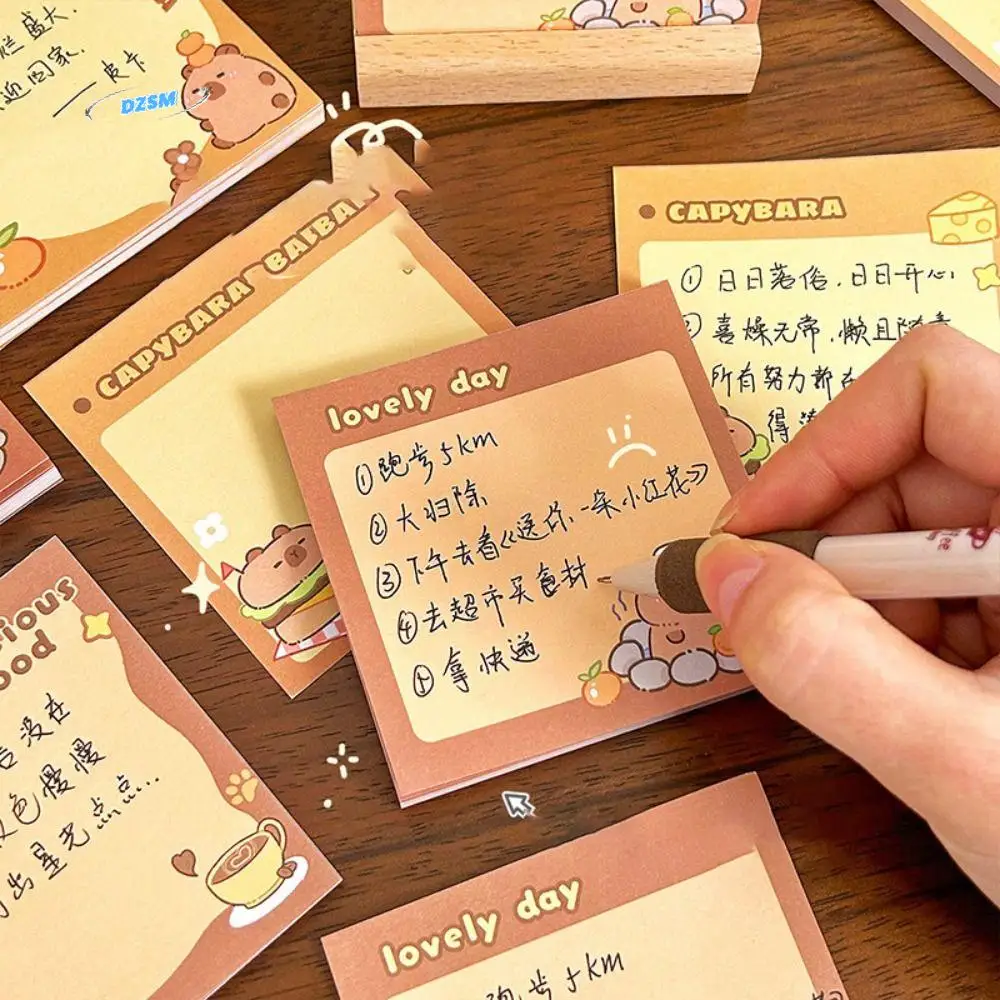 烂盛大.
迎回家.
——皮卡
DZSM
CAPYBARA
CAPYBARA
①日日落俗,日日开心
喜燥无常,懒且随意
所有努力都在
得
lovely day
①跑步5km
②大归除
③下午去看《送你一朵小红花》
④去超市买食材
⑤拿快递
ood
没在
色慢慢
出星光点点...
lovely day
跑步5km